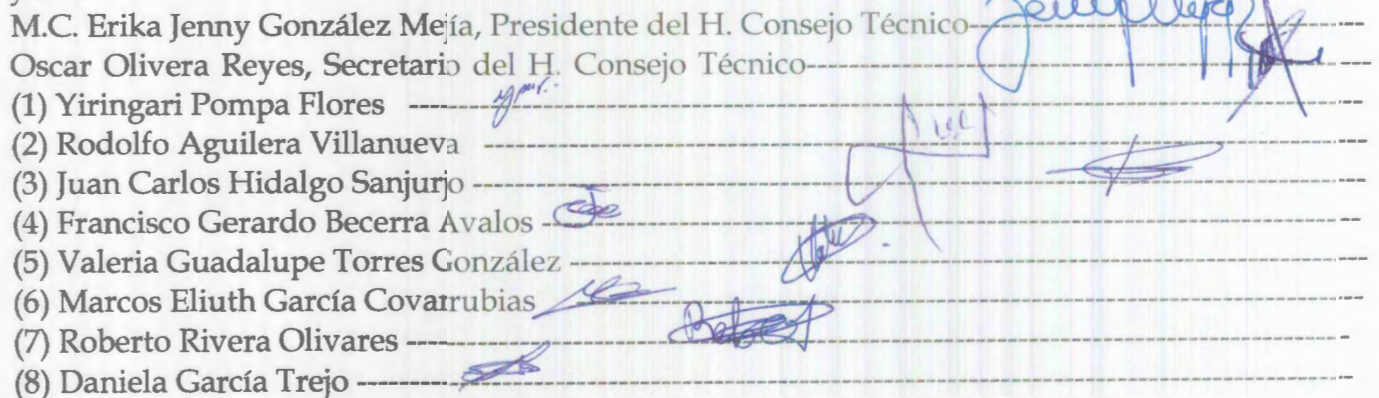 M.C. Erika Jenny González Mejía, Presidente del H. Consejo Técnico
Oscar Olivera Reyes, Secretario del H. Consejo Técnico
(1) Yiringari Pompa Flores
(2) Rodolfo Aguilera Villanueva
(3) Juan Carlos Hidalgo Sanjurjo
(4) Francisco Gerardo Becerra Avalos
(5) Valeria Guadalupe Torres González
(6) Marcos Eliuth García Covarrubias
(7) Roberto Rivera Olivares
(8) Daniela García Trejo